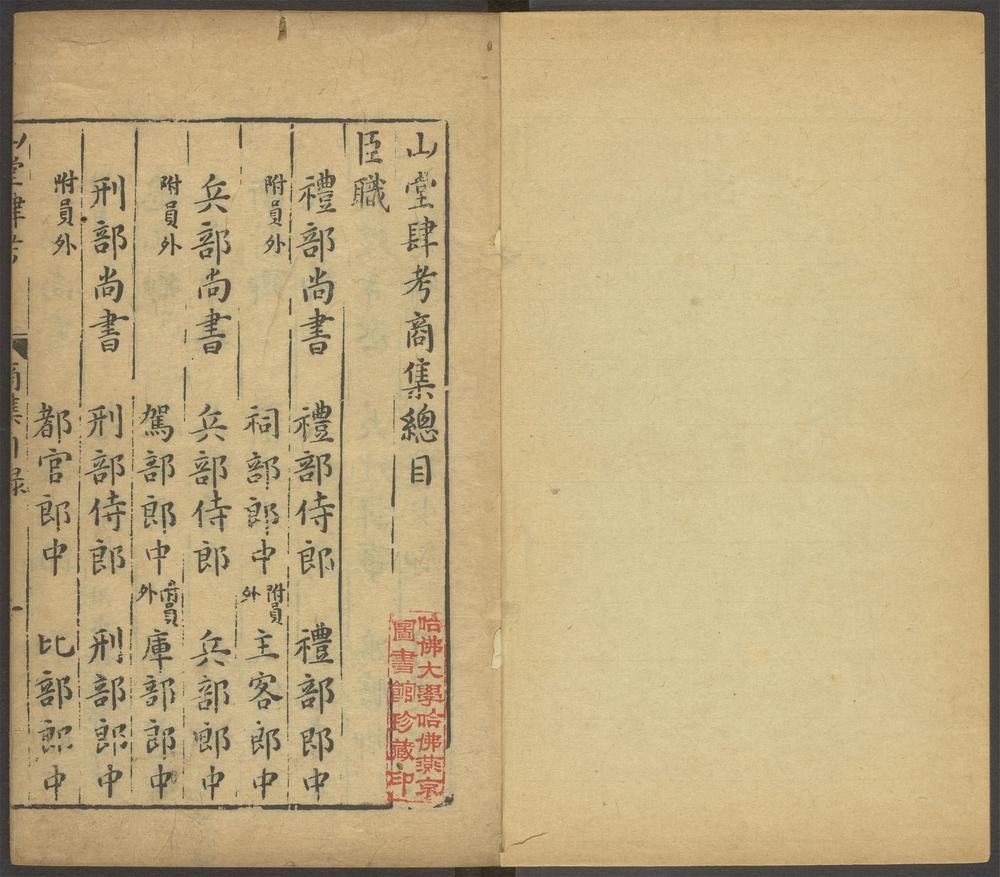 山堂肆考商集總目
臣職
禮部尚書 禮部侍郎 禮部郎中
附員外 祠部郎中 附員外 主客郎中
兵部尚書 兵部侍郎 兵部郎中
附員外 駕部郎中 附員外 庫部郎中
刑部尚書 刑部侍郎 刑部郎中
附員外 都官郎中 比部郎中
山堂肆考 商集目錄 一
哈佛大學哈佛燕京
圖書館珍藏印